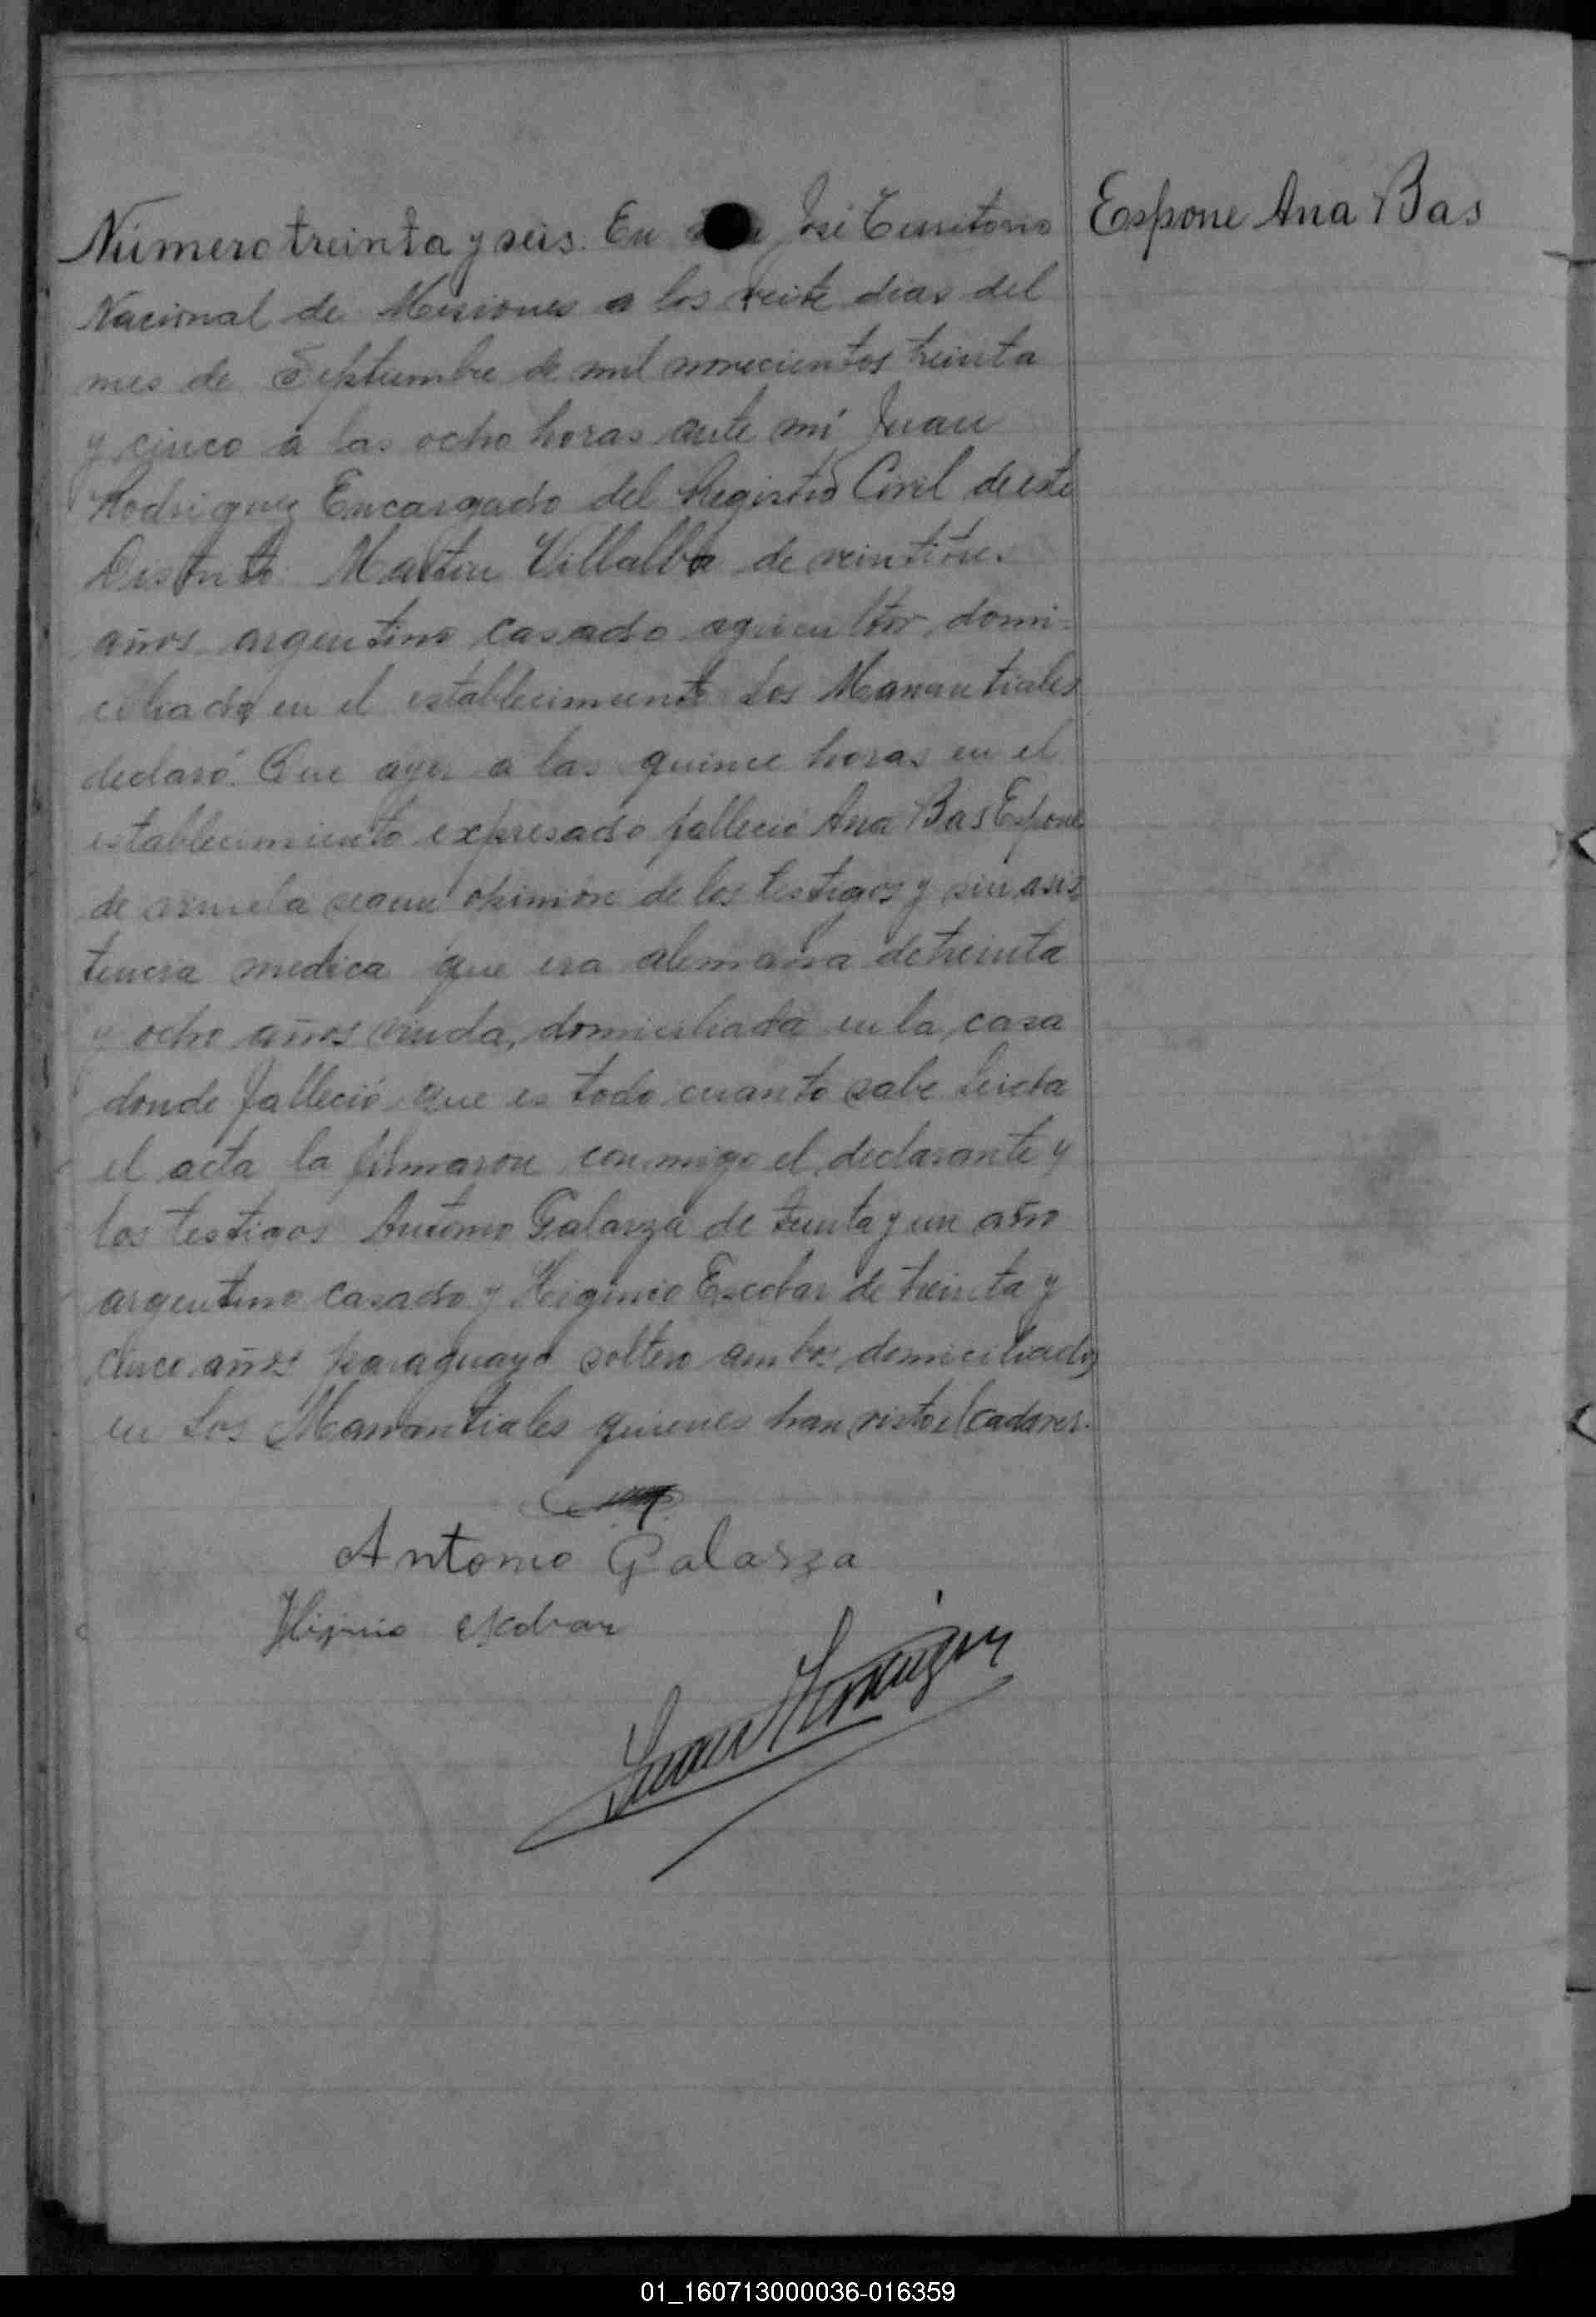 Número treinta y seis. En José Territorio
Nacional de Misiones a los veite dias del
mes de Septiembre de mil novecientos treinta
y cinco a las ocho horas ante mí Juan
Rodriguez Encargado del Registro Civil de este
Distrito Martin Villalba de veintitres
años argentino casado agricultor, domi-
ciliado en el establecimiento Los Manantiales
declaró: Que ayer a las quince horas en el
establecimiento expresado falleció Ana Bas Espone
de segun opinión de los testigos y sin asis
tencia medica que era alemana de treinta
y ocho años viuda, domiciliada en la casa
donde falleció que es todo cuanto sabe Leida
el acta la firmaron conmigo el declarante y
los testigos Antonio Galarza de treinta y un año
argentino casado y Higinio Escobar de treinta y
cinco años paraguayo soltero ambos domiciliados
en Los Manantiales quienes han visto el cadaver.
Antonio Galarza
Higinio escobar
Espone Ana Bas
01_160713000036-016359